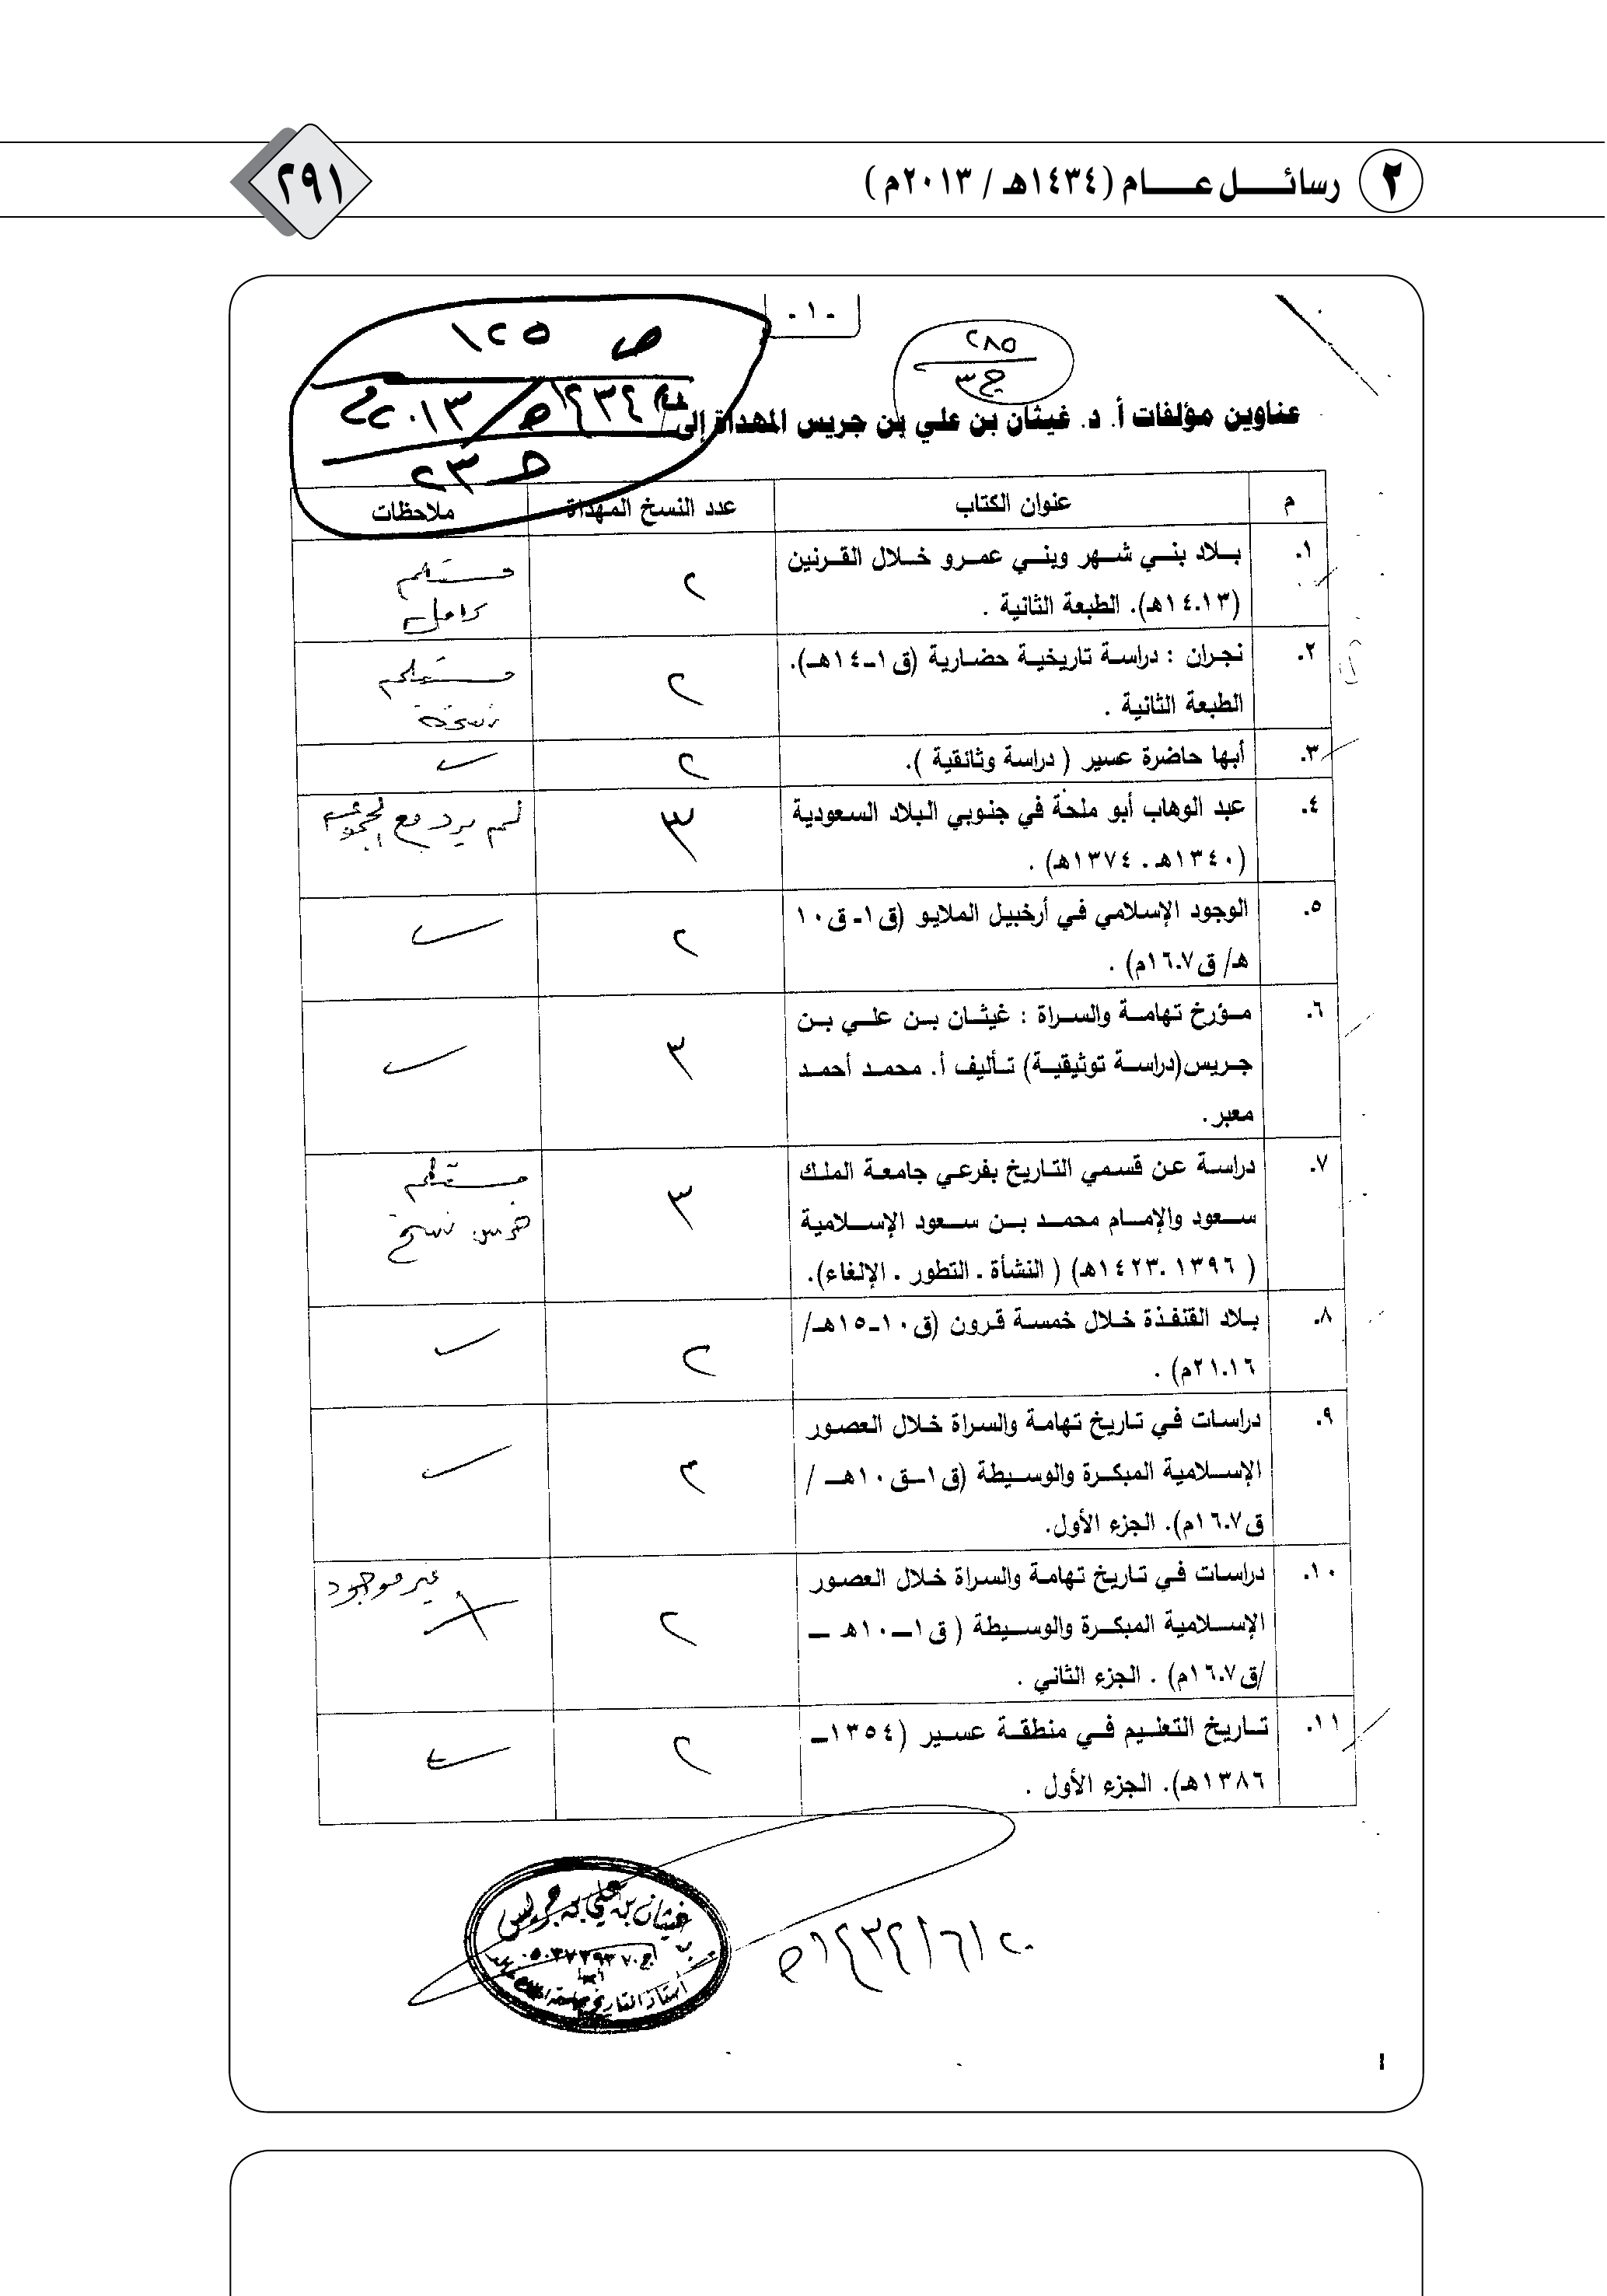 ٢ رسائل عام (١٤٣٤هـ / ٢٠١٣م)
٢٩١
- ١ -
ص ١٢٥
١٤٣٤هـ / ٢٠١٣م
حـ ٢٣
٢٨٥
ج ٣
عناوين مؤلفات أ. د. غيثان بن علي بن جريس المهداة إلى
م عنوان الكتاب عدد النسخ المهداة ملاحظات
١. بلاد بني شهر وبني عمرو خلال القرنين
(١٤.١٣هـ). الطبعة الثانية .
٢
مستلم
كامل
٢. نجران : دراسة تاريخية حضارية (ق١-١٤هـ).
الطبعة الثانية .
٢
مستلم
نسخة
٣. أبها حاضرة عسير ( دراسة وثائقية ).
٢
٤. عبد الوهاب أبو ملحة في جنوبي البلاد السعودية
(١٣٤٠هـ ـ ١٣٧٤هـ) .
٣
لم يرد مع المجموعة
٥. الوجود الإسلامي في أرخبيل الملايو (ق١- ق١٠
هـ/ ق١٦.٧م) .
٢
٦. مؤرخ تهامة والسراة : غيثان بن علي بن
جريس(دراسة توثيقية) تأليف أ. محمد أحمد
معبر.
٣
٧. دراسة عن قسمي التاريخ بفرعي جامعة الملك
سعود والإمام محمد بن سعود الإسلامية
( ١٣٩٦ .١٤٢٣هـ) ( النشأة . التطور . الإلغاء).
٣
مستلم
خمس نسخ
٨. بلاد القنفذة خلال خمسة قرون (ق١٠-١٥هـ/
٢١.١٦م) .
٢
٩. دراسات في تاريخ تهامة والسراة خلال العصور
الإسلامية المبكرة والوسيطة (ق١-ق١٠هـ /
ق١٦.٧م). الجزء الأول.
٢
١٠. دراسات في تاريخ تهامة والسراة خلال العصور
الإسلامية المبكرة والوسيطة ( ق١-١٠هـ -
/ق١٦.٧م) . الجزء الثاني .
٢
غير موجود
١١. تاريخ التعليم في منطقة عسير (١٣٥٤-
١٣٨٦هـ). الجزء الأول .
٢
٢٠/٦/١٤٣٤هـ
غيثان بن علي بن جريس
أبها
أستاذ التاريخ بجامعة الملك خالد
١